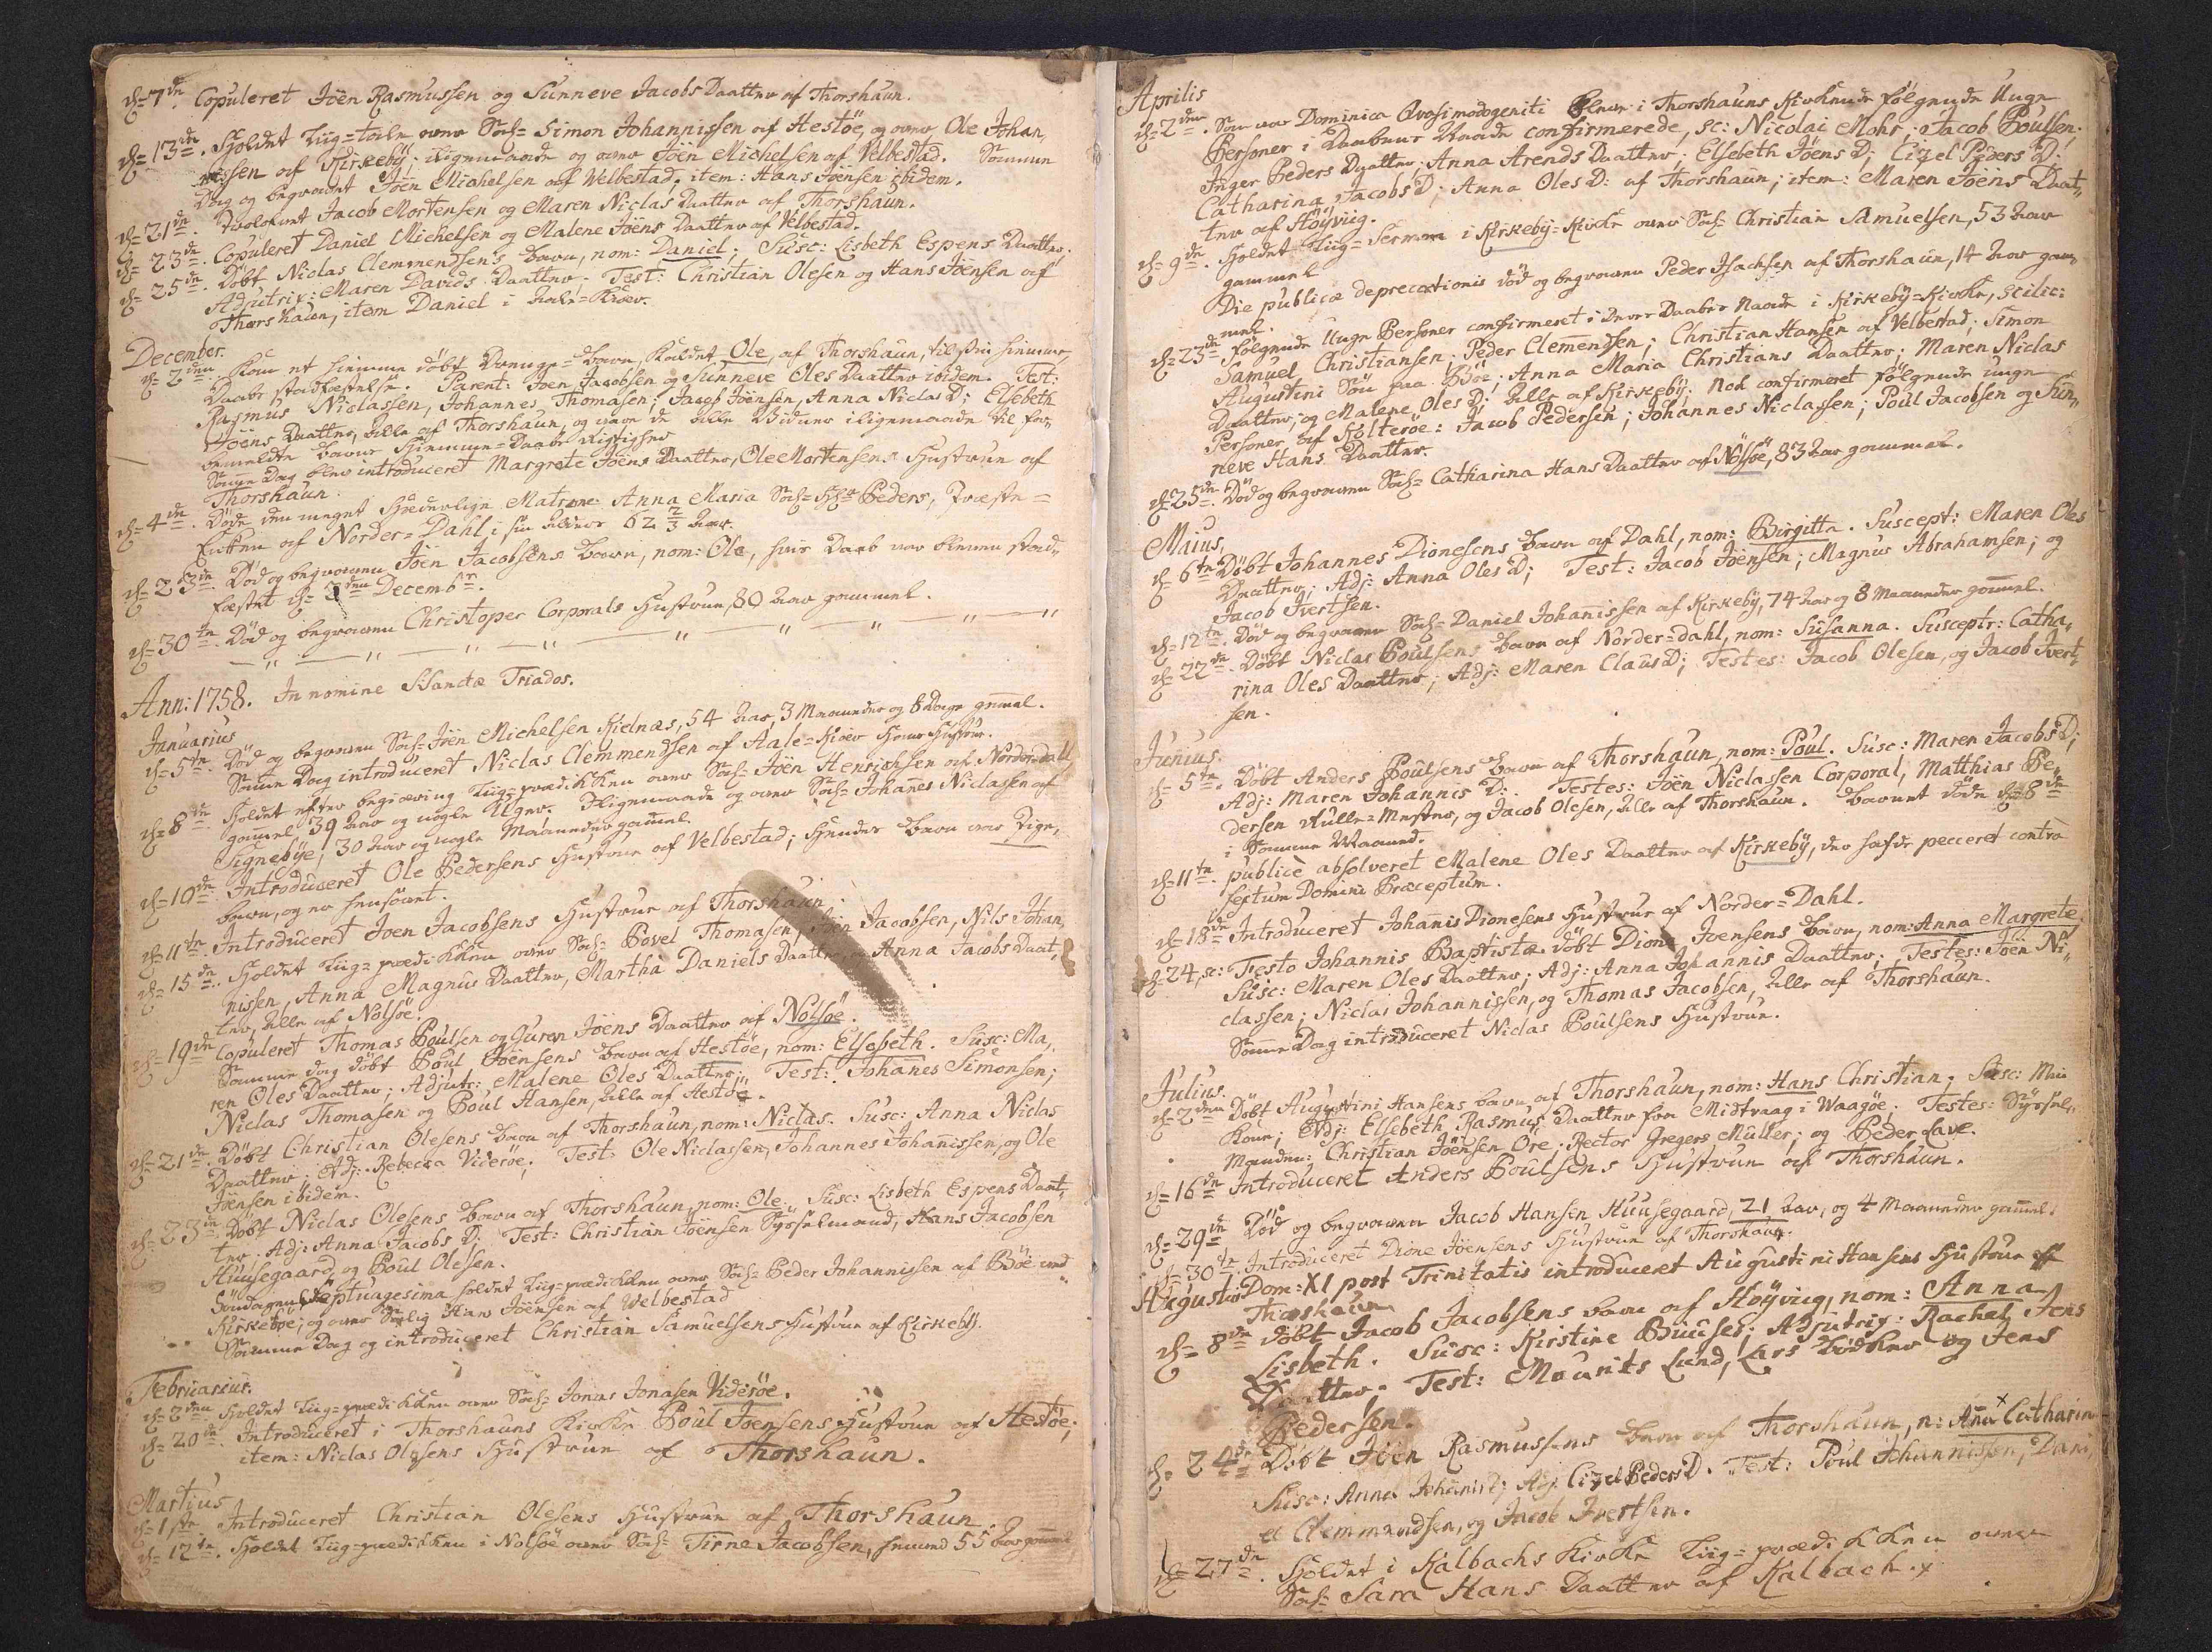 d: 7de. Copuleret Jöen Rasmussen og Sunneve Jacobs Daatter af Thorshaun.
d: 13de. Holdet Liig=tale over Sal: Simon Johannissen af Hestöe, og over Ole Johan„
nissen af Kirkebÿ; iligemaade og over Jöen Michelsen af Velbestad. Samme
Dag og begravet Jöen Michelsen af Velbestad; item: Hans Joensen ibidem.
d: 21de. Trolovet Jacob Mortensen og Maren Niclas Daatter af Thorshaun.
d: 23de. Copuleret Daniel Michelsen og Malene Jöens Daatter af Velbestad.
d: 25de. Döbt Niclas Clemmendsens barn, nom: Daniel; Susc: Lisbeth Espens Daatter.
Adjutrix: Maren Davids Daatter. Test: Christian Olesen og Hans Jöensen af
Thorshaun, item Daniel i Aale=Kiær.
December.
d: 2den. Kom et hiemme döbt Drenge=barn, kaldet Ole, af Thorshaun, til sin hiemme
Daabs stadfæstelse. Parent: Joen Jacobsen og Sunneve Oles Daatter ibidem. Test:
Rasmus Niclassen, Johannes Thomasen; Jacob Joensen, Anna Niclas D; Elsebeth
Jöens Daatter, alle af Thorshaun, og vare de alle Vidner iligemaade til for„
bemeldte barns Hiemme=Daabs Rigtighed
Samme Dag blev introduceret Margrete Jöens Daatter, Ole Mortensens Hustrue af
Thorshaun.
d: 4de. Döde den meget Hæderlige Matrone Anna Maria Sal: Hr: Peders, Præste=
Enken af Norder=Dahl, i sin Alders 62 2/3 Aar.
d: 23de. Död og begraven Jöen Jacobsens barn, nom: Ole, hvis Daab var bleven stad„
fæstet d: 2den Decembr.
d: 30te. Död og begraven Christoper Corporals Hustrue, 80 Aar gammel.
Ann: 1758. In nomine SSanctæ Triados.
Januarius
d: 5te. Död og begraven Sal: Jöen Michelsen Kielnæs, 54 Aar, 3 Maaneder og 8 Dage gammel.
Samme Dag introduceret Niclas Clemmendsen af Aale=Kiær Hans Hustrue.
d: 8de. Holdet efter begiæring Liig=prædikken over Sal: Jöen Henrichsen af Norderdall
gammel 39 Aar og nogle Uger. Iligemaade og over Sal: Johanes Niclassen af
Signebÿe, 30 Aar og nogle Maaneder gammel.
d: 10de. Introduceret Ole Pedersens Hustrue af Velbestad; Hendes barn var Pige„
barn, og er hensovet.
d: 11te. Introduceret Joen Jacobsens Hustrue af Thorshaun.
d: 15de. Holdet Liig=prædikken over Sal: Povel Thomasen, Jöen Jacobsen, Nils Johan„
nissen, Anna Magnus Daatter, Martha Daniels Daatter, og Anna Jacobs Daat„
ter, alle af Nolsöe.
d: 19de Copuleret Thomas Poulsen og Guren Jöens Daatter af Nolsöe.
Samme dag döbt Poul Joensens barn af Hestöe, nom: Elsebeth. Susc: Ma„
ren Oles Daatter; Adjutr: Malene Oles Daatter; Test: Johanes Simonsen;
Niclas Thomasen og Poul Hansen, alle af Hestöe.
d: 21de. Döbt Christian Olesens barn af Thorshaun, nom: Niclas. Susc: Anna Niclas
Daatter; Adj: Rebecca Videröe; Test: Ole Niclassen, Johannes Johanissen, og Ole
Jöensen ibidem.
d: 23de. Döbt Niclas Olesens barn af Thorshaun, nom: Ole. Susc: Lisbeth Espens Daat„
ter. Adj: Anna Jacobs D; Test: Christian Joensen Sysselmand, Hans Jacobsen
Huusegaard, og Poul Olesen.
Söndagen Septuagesima holdet Liig=prædikken over Sal: Peder Johannissen af Böe ved
Kirkeböe; og over Salig Hans Jöensen af Welbestad
Samme Dag og introduceret Christian Samuelsens Hustrue af Kirkebÿ.
Februarius.
d: 2den. Holdet Liig=prædikken over Sal: Jonas Jonasen Videröe.
d: 20de. Introduceret i Thorshauns Kirke Poul Joensens Hustrue af Hestöe;
item: Niclas Olesens Hustrue af Thorshaun.
Martius
d: 1ste Introduceret Christian Olesens Hustrue af Thorshaun.
d: 12te. Holdet Liig=prædikken i Nolsöe over Sal: Tirne Jacobsen, henved 55 Aar gammel
Aprilis
d: 2den. Som var Dominica Qvasimodogeniti bleve i Thorshauns Kirke følgende Unge
Personer i Daabens Naade confirmerede, sc: Nicolai Mohr; Jacob Poulsen;
Inger Peders Daatter; Anna Arends Daatter; Elsebeth Jöens D; Cizel Peders D;
Catharina Jacobs D; Anna Oles D: af Thorshaun; item: Maren Jöens Daat„
ter af Höÿviig.
d: 9de. Holdet Liig=Sermon i Kirkebÿ=Kirke over Sal: Christian Samuelsen, 53 Aar
gammel
Die publicæ deprecationis död og begraven Peder Isachsen af Thorshaun, 14 Aar gam„
mel.
d: 23de Følgende Unge Personer confirmeret i deres Daabes Naade i Kirkebÿ=Kirke, scilic:
Samuel Christiansen; Peder Clemendsen; Christian Hansen af Velbestad; Simon
Augustini Sön paa Böe; Anna Maria Christians Daatter; Maren Niclas
Daatter; og Malene Oles D: alle af Kirkebÿ; Nok confirmeret følgende unge
Personer af Kolteröe: Jacob Pedersen; Johannes Niclassen; Poul Jacobsen og Sun„
neve Hans Daatter.
d: 25de. Död og begraven Sal: Catharina Hans Daatter af Nölsöe, 83 Aar gammel.
Maius
d: 6te Döbt Johannes Dionesens barn af Dahl, nom: Birgitta. Suscept: Maren Oles
Daatter; Adj: Anna Oles D; Test: Jacob Jöensen; Magnus Abrahamsen; og
Jacob Ivertsen.
d: 12te. Död og begraven Sal: Daniel Johanissen af Kirkebÿ, 74 Aar og 8 Maaneder gammel.
d: 22de. Döbt Niclas Poulsens barn af Norder=dahl, nom: Susanna. Susceptr: Catha„
rina Oles Daatter; Adj: Maren Claus D; Testes: Jacob Olesen, og Jacob Ivert„
sen.
Junius.
d: 5te. Döbt Anders Poulsens barn af Thorshaun, nom: Poul. Susc: Maren Jacobs D;
Adj: Maren Johannis D: Testes: Jöen Niclassen Corporal, Matthias Pe„
dersen Rulle=Mester, og Jacob Olesen, alle af Thorshaun. barnet döde d: 8de
i Samme Maaned.
d: 11te. publicè absolveret Malene Oles Daatter af Kirkebÿ, der hafde pecceret contra
sextum Domini Præceptum.
d: 18de Introduceret Johanis Dionesens Hustrue af Norder=Dahl.
d: 24, sc: Festo Johannis Baptistæ döbt Dione Joensens barn, nom: Anna Margrete
Susc: Maren Oles Daatter; Adj: Anna Johannis Daatter; Testes: Jöen Ni„
classen; Niclas Johannissen, og Thomas Jacobsen, alle af Thorshaun.
Samme Dag introduceret Niclas Poulsens Hustrue.
Julius.
d: 2den Döbt Augustini Hansens barn af Thorshaun, nom: Hans Christian; Susc: Min
Kone; Adj: Elsebeth Rasmus Daatter fra Midtvaag i Waagöe. Testes: Syssel„
Manden: Christian Jöensen Ore; Rector Gregers Müller; og Peder Lave.
d: 16de Introduceret Anders Poulsens Hustrue af Thorshaun.
d: 29de Död og begraven Jacob Hansen Huusegaard, 21 Aar, og 4 Maaneder gammel.
d: 30te Introduceret Dione Jöensens Hustrue af Thorshaun.
Augustus Dom: XI post Trinitatis introduceret Augustini Hansens Hustrue af
Thorshaun
d: 8de döbt Jacob Jacobsens barn af Höÿviig, nom: Anna
Lisbeth. Susc: Kirstine Biuuses; Adjutrix: Rachel Jens
Daatter. Test: Mourits Lund, Lars Bödker og Jens
Pedersen.
d: 24de Döbt Jöen Rasmussens barn af Thorshaun, n: Ana Catharin
Susc: Anna Johanis D; Adj. Cizel Peders D. Test: Poul Johannissen, Dani„
el Clemmendsen, og Jacob Ivertsen.
d: 27de. Holdet i Kalbachs Kirke Liig=prædikken over
Sal: Sara Hans Daatter af Kalbach.